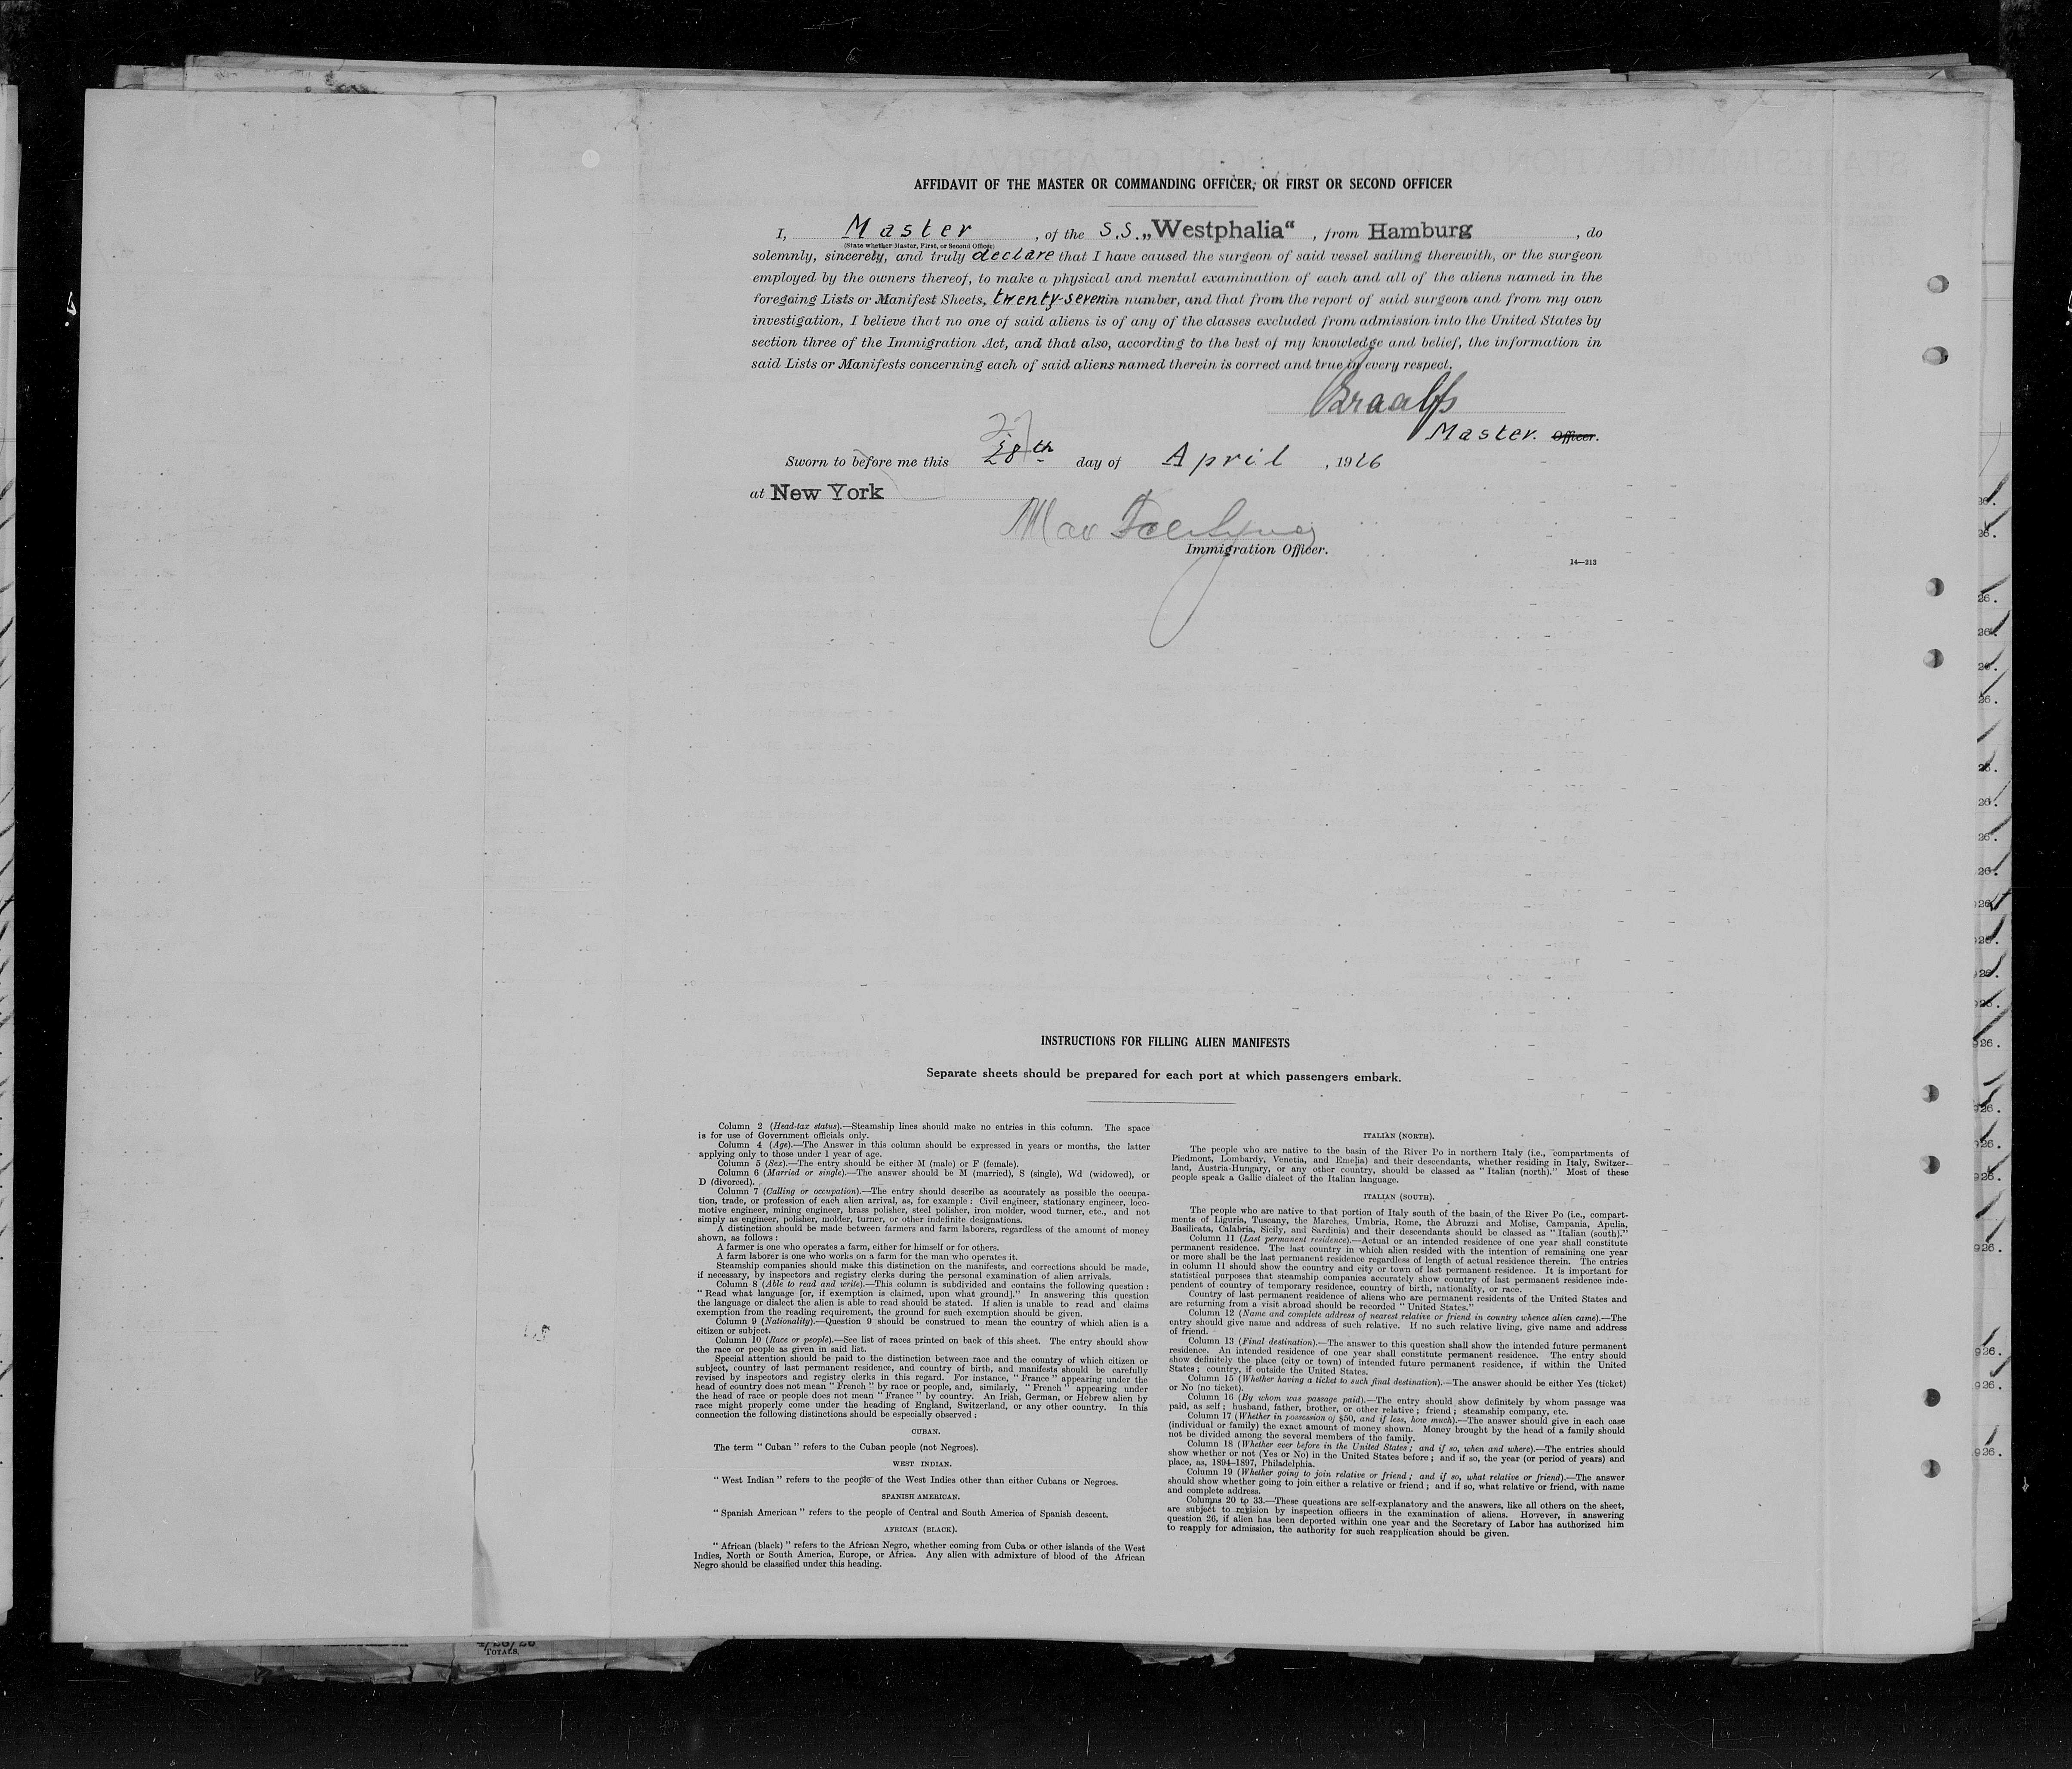 AFFIDAVIT OF THE MASTER OR COMMANDING OFFICER, OR FIRST OR SECOND OFFICER
I, Master, of the S.S. „Westphalia“, from Hamburg, do
(State whether Master, First, or Second Officer)
solemnly, sincerely, and truly declare that I have caused the surgeon of said vessel sailing therewith, or the surgeon
employed by the owners thereof, to make a physical and mental examination of each and all of the aliens named in the
foregoing Lists or Manifest Sheets, twenty-seven in number, and that from the report of said surgeon and from my own
investigation, I believe that no one of said aliens is of any of the classes excluded from admission into the United States by
section three of the Immigration Act, and that also, according to the best of my knowledge and belief, the information in
said Lists or Manifests concerning each of said aliens named therein is correct and true in every respect.
Graalfs
Master. Officer.
27
Sworn to before me this 28th day of April, 1926
at New York
Max
Immigration Officer.
14—213
INSTRUCTIONS FOR FILLING ALIEN MANIFESTS
Separate sheets should be prepared for each port at which passengers embark.
Column 2 (Head-tax status).—Steamship lines should make no entries in this column. The space
is for use of Government officials only.
Column 4 (Age).—The Answer in this column should be expressed in years or months, the latter
applying only to those under 1 year of age.
Column 5 (Sex).—The entry should be either M (male) or F (female).
Column 6 (Married or single).—The answer should be M (married), S (single), Wd (widowed), or
D (divorced).
Column 7 (Calling or occupation).—The entry should describe as accurately as possible the occupa-
tion, trade, or profession of each alien arrival, as, for example: Civil engineer, stationary engineer, loco-
motive engineer, mining engineer, brass polisher, steel polisher, iron molder, wood turner, etc., and not
simply as engineer, polisher, molder, turner, or other indefinite designations.
A distinction should be made between farmers and farm laborers, regardless of the amount of money
shown, as follows:
A farmer is one who operates a farm, either for himself or for others.
A farm laborer is one who works on a farm for the man who operates it.
Steamship companies should make this distinction on the manifests, and corrections should be made,
if necessary, by inspectors and registry clerks during the personal examination of alien arrivals.
Column 8 (Able to read and write).—This column is subdivided and contains the following question:
“ Read what language [or, if exemption is claimed, upon what ground].” In answering this question
the language or dialect the alien is able to read should be stated. If alien is unable to read and claims
exemption from the reading requirement, the ground for such exemption should be given.
Column 9 (Nationality).—Question 9 should be construed to mean the country of which alien is a
citizen or subject.
Column 10 (Race or people).—See list of races printed on back of this sheet. The entry should show
the race or people as given in said list.
Special attention should be paid to the distinction between race and the country of which citizen or
subject, country of last permanent residence, and country of birth, and manifests should be carefully
revised by inspectors and registry clerks in this regard. For instance, “ France ” appearing under the
head of country does not mean “ French ” by race or people, and, similarly, “ French ” appearing under
the head of race or people does not mean “ France ” by country. An Irish, German, or Hebrew alien by
race might properly come under the heading of England, Switzerland, or any other country. In this
connection the following distinctions should be especially observed:
CUBAN.
The term “ Cuban ” refers to the Cuban people (not Negroes).
WEST INDIAN.
“ West Indian ” refers to the people of the West Indies other than either Cubans or Negroes.
SPANISH AMERICAN.
“ Spanish American ” refers to the people of Central and South America of Spanish descent.
AFRICAN (BLACK).
“ African (black) ” refers to the African Negro, whether coming from Cuba or other islands of the West
Indies, North or South America, Europe, or Africa. Any alien with admixture of blood of the African
Negro should be classified under this heading.
ITALIAN (NORTH).
The people who are native to the basin of the River Po in northern Italy (i.e., compartments of
Piedmont, Lombardy, Venetia, and Emelia) and their descendants, whether residing in Italy, Switzer-
land, Austria-Hungary, or any other country, should be classed as “ Italian (north).” Most of these
people speak a Gallic dialect of the Italian language.
ITALIAN (SOUTH).
The people who are native to that portion of Italy south of the basin of the River Po (i.e., compart-
ments of Liguria, Tuscany, the Marches, Umbria, Rome, the Abruzzi and Molise, Campania, Apulia,
Basilicata, Calabria, Sicily, and Sardinia) and their descendants should be classed as “ Italian (south).”
Column 11 (Last permanent residence).—Actual or an intended residence of one year shall constitute
permanent residence. The last country in which alien resided with the intention of remaining one year
or more shall be the last permanent residence regardless of length of actual residence therein. The entries
in column 11 should show the country and city or town of last permanent residence. It is important for
statistical purposes that steamship companies accurately show country of last permanent residence inde-
pendent of country of temporary residence, country of birth, nationality, or race.
Country of last permanent residence of aliens who are permanent residents of the United States and
are returning from a visit abroad should be recorded “ United States.”
Column 12 (Name and complete address of nearest relative or friend in country whence alien came).—The
entry should give name and address of such relative. If no such relative living, give name and address
of friend.
Column 13 (Final destination).—The answer to this question shall show the intended future permanent
residence. An intended residence of one year shall constitute permanent residence. The entry should
show definitely the place (city or town) of intended future permanent residence, if within the United
States; country, if outside the United States.
Column 15 (Whether having a ticket to such final destination).—The answer should be either Yes (ticket)
or No (no ticket).
Column 16 (By whom was passage paid).—The entry should show definitely by whom passage was
paid, as self; husband, father, brother, or other relative; friend; steamship company, etc.
Column 17 (Whether in possession of $50, and if less, how much).—The answer should give in each case
(individual or family) the exact amount of money shown. Money brought by the head of a family should
not be divided among the several members of the family.
Column 18 (Whether ever before in the United States; and if so, when and where).—The entries should
show whether or not (Yes or No) in the United States before; and if so, the year (or period of years) and
place, as, 1894–1897, Philadelphia.
Column 19 (Whether going to join relative or friend; and if so, what relative or friend).—The answer
should show whether going to join either a relative or friend; and if so, what relative or friend, with name
and complete address.
Columns 20 to 33.—These questions are self-explanatory and the answers, like all others on the sheet,
are subject to revision by inspection officers in the examination of aliens. However, in answering
question 26, if alien has been deported within one year and the Secretary of Labor has authorized him
to reapply for admission, the authority for such reapplication should be given.
TOTALS.